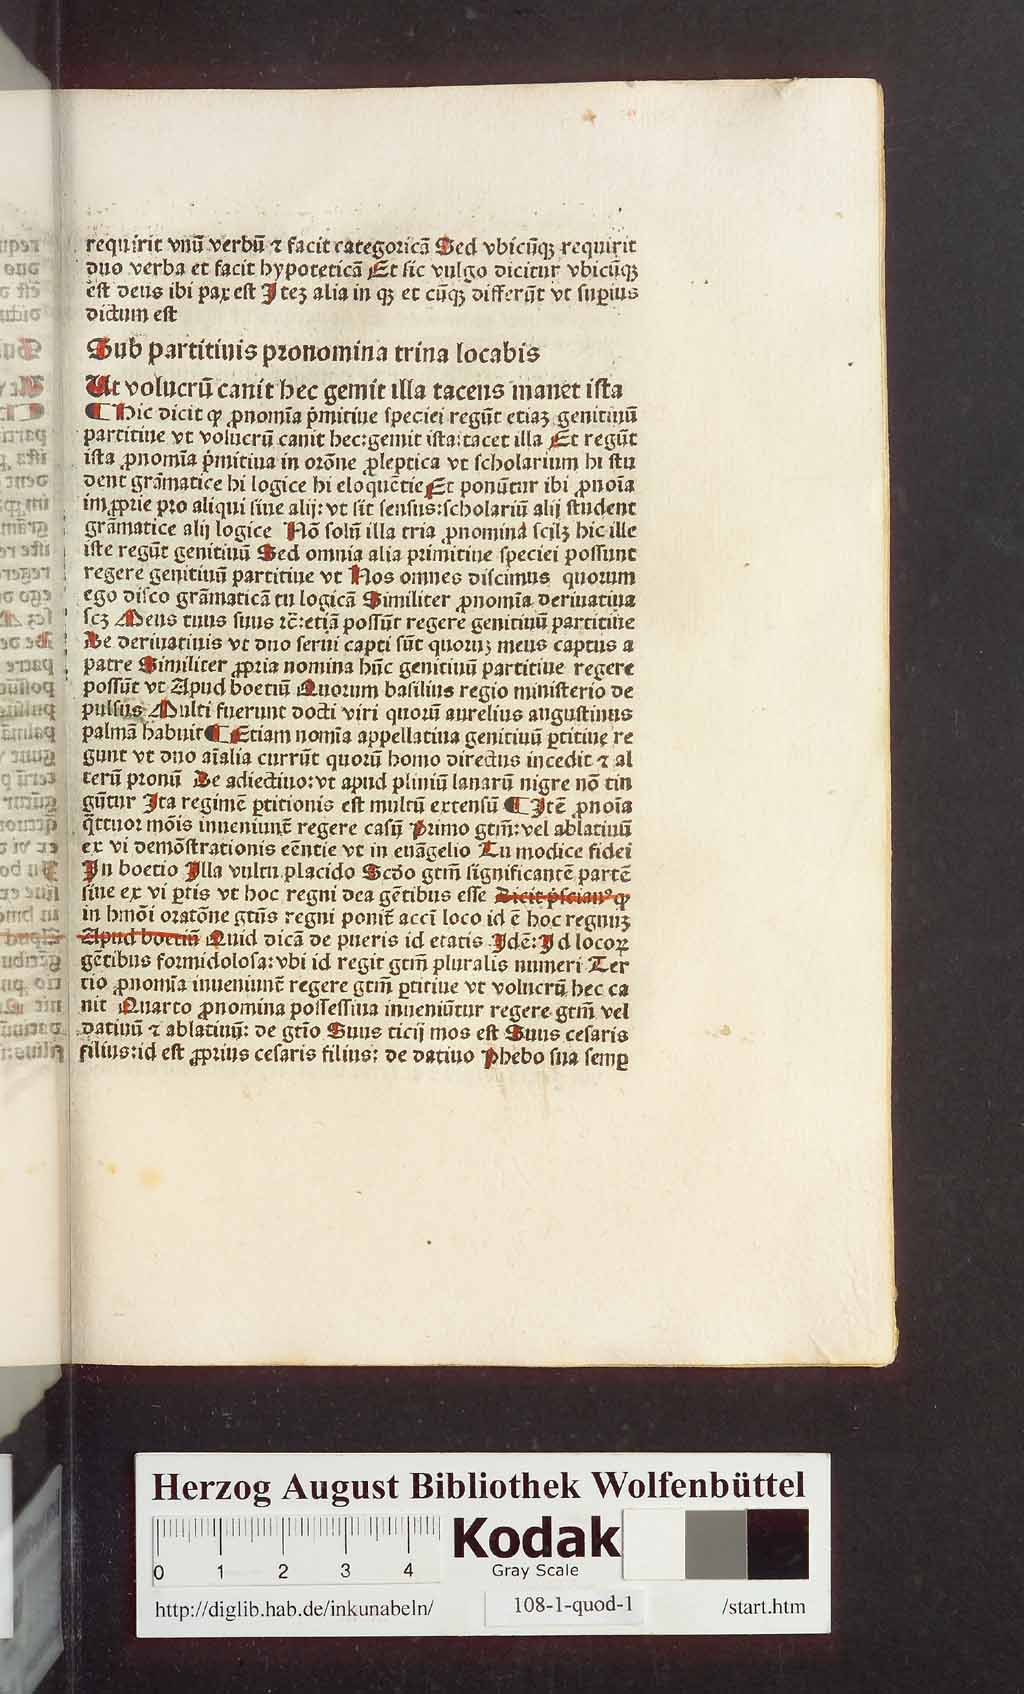 requirit vnū verbū ⁊ facit categoricā Sed vbicūqꝫ requirit
duo verba et facit hypoteticā Et sic vulgo dicitur vbicūqꝫ
est deus ibi pax est Iteꝫ alia in qꝫ et cūqꝫ differūt vt superius
dictum est
Sub partitiuis pronomina trina locabis
Ut volucrū canit hec gemit illa tacens manet ista
¶ Hic dicit ꝙ ꝓnomīa pͥmitiue speciei regūt etiaꝫ genitiuū
partitiue vt volucrū canit hec:gemit ista:tacet illa Et regūt
ista ꝓnomīa pͥmitiua in orōne ꝓleptica vt scholarium hi stu
dent grāmatice hi logice hi eloquētie Et ponūtur ibi ꝓnoīa
imꝓprie pro aliqui siue alij: vt sit sensus:scholariū alij student
grāmatice alij logice Nō solū illa tria ꝓnomina scilꝫ hic ille
iste regūt genitiuū Sed omnia alia primitiue speciei possunt
regere genitiuū partitiue vt Nos omnes discimus quorum
ego disco grāmaticā tu logicā Similiter ꝓnomīa deriuatiua
scꝫ Meus tuus suus ⁊c̄:etiā possūt regere genitiuū partitiue
De deriuatiuis vt duo serui capti sūt quoruꝫ meus captus a
patre Similiter ꝓpria nomina hūc genitiuū partitiue regere
possūt vt Apud boetiū Quorum basilius regio ministerio de
pulsus Multi fuerunt docti viri quorū aurelius augustinus
palmā habuit ¶ Etiam nomīa appellatiua genitiuū ꝑtitiue re
gunt vt duo aīalia currūt quorū homo directus incedit ⁊ al
terū pronū De adiectiuo:vt apud pliniū lanarū nigre nō tin
gūtur Ita regimē ꝑtitionis est multū extensū ¶ Itē ꝓnoīa
q̄ttuor mōis inueniunt̄ regere casū Primo gtm̄:vel ablatiuū
ex vi demōstrationis eēntie vt in euāgelio Tu modice fidei
In boetio Illa vultu placido Scdo gtm̄ significantē partē
siue ex vi ꝑtis vt hoc regni dea gētibus esse Dicit pͥscianꝰ ꝙ
in hmōi oratōne gtūs regni ponit̄ accī loco id ē hoc regnuꝫ
Apud boetiū Quid dicā de pueris id etatis Idē: Id locoꝝ
gētibus formidolosa: vbi id regit gtm̄ pluralis numeri Ter
tio ꝓnomīa inueniunt̄ regere gtm̄ ꝑtitiue vt volucrū hec ca
nit Quarto ꝓnomina possessiua inueniūtur regere gtm̄ vel
datiuū ⁊ ablatiuū: de gtīo Suus ticij mos est Suus cesaris
filius:id est ꝓprius cesaris filius: de datiuo Phebo sua semꝑ
Herzog August Bibliothek Wolfenbüttel
0 1 2 3 4
Kodak
Gray Scale
http://diglib.hab.de/inkunabeln/ 108-1-quod-1 /start.htm